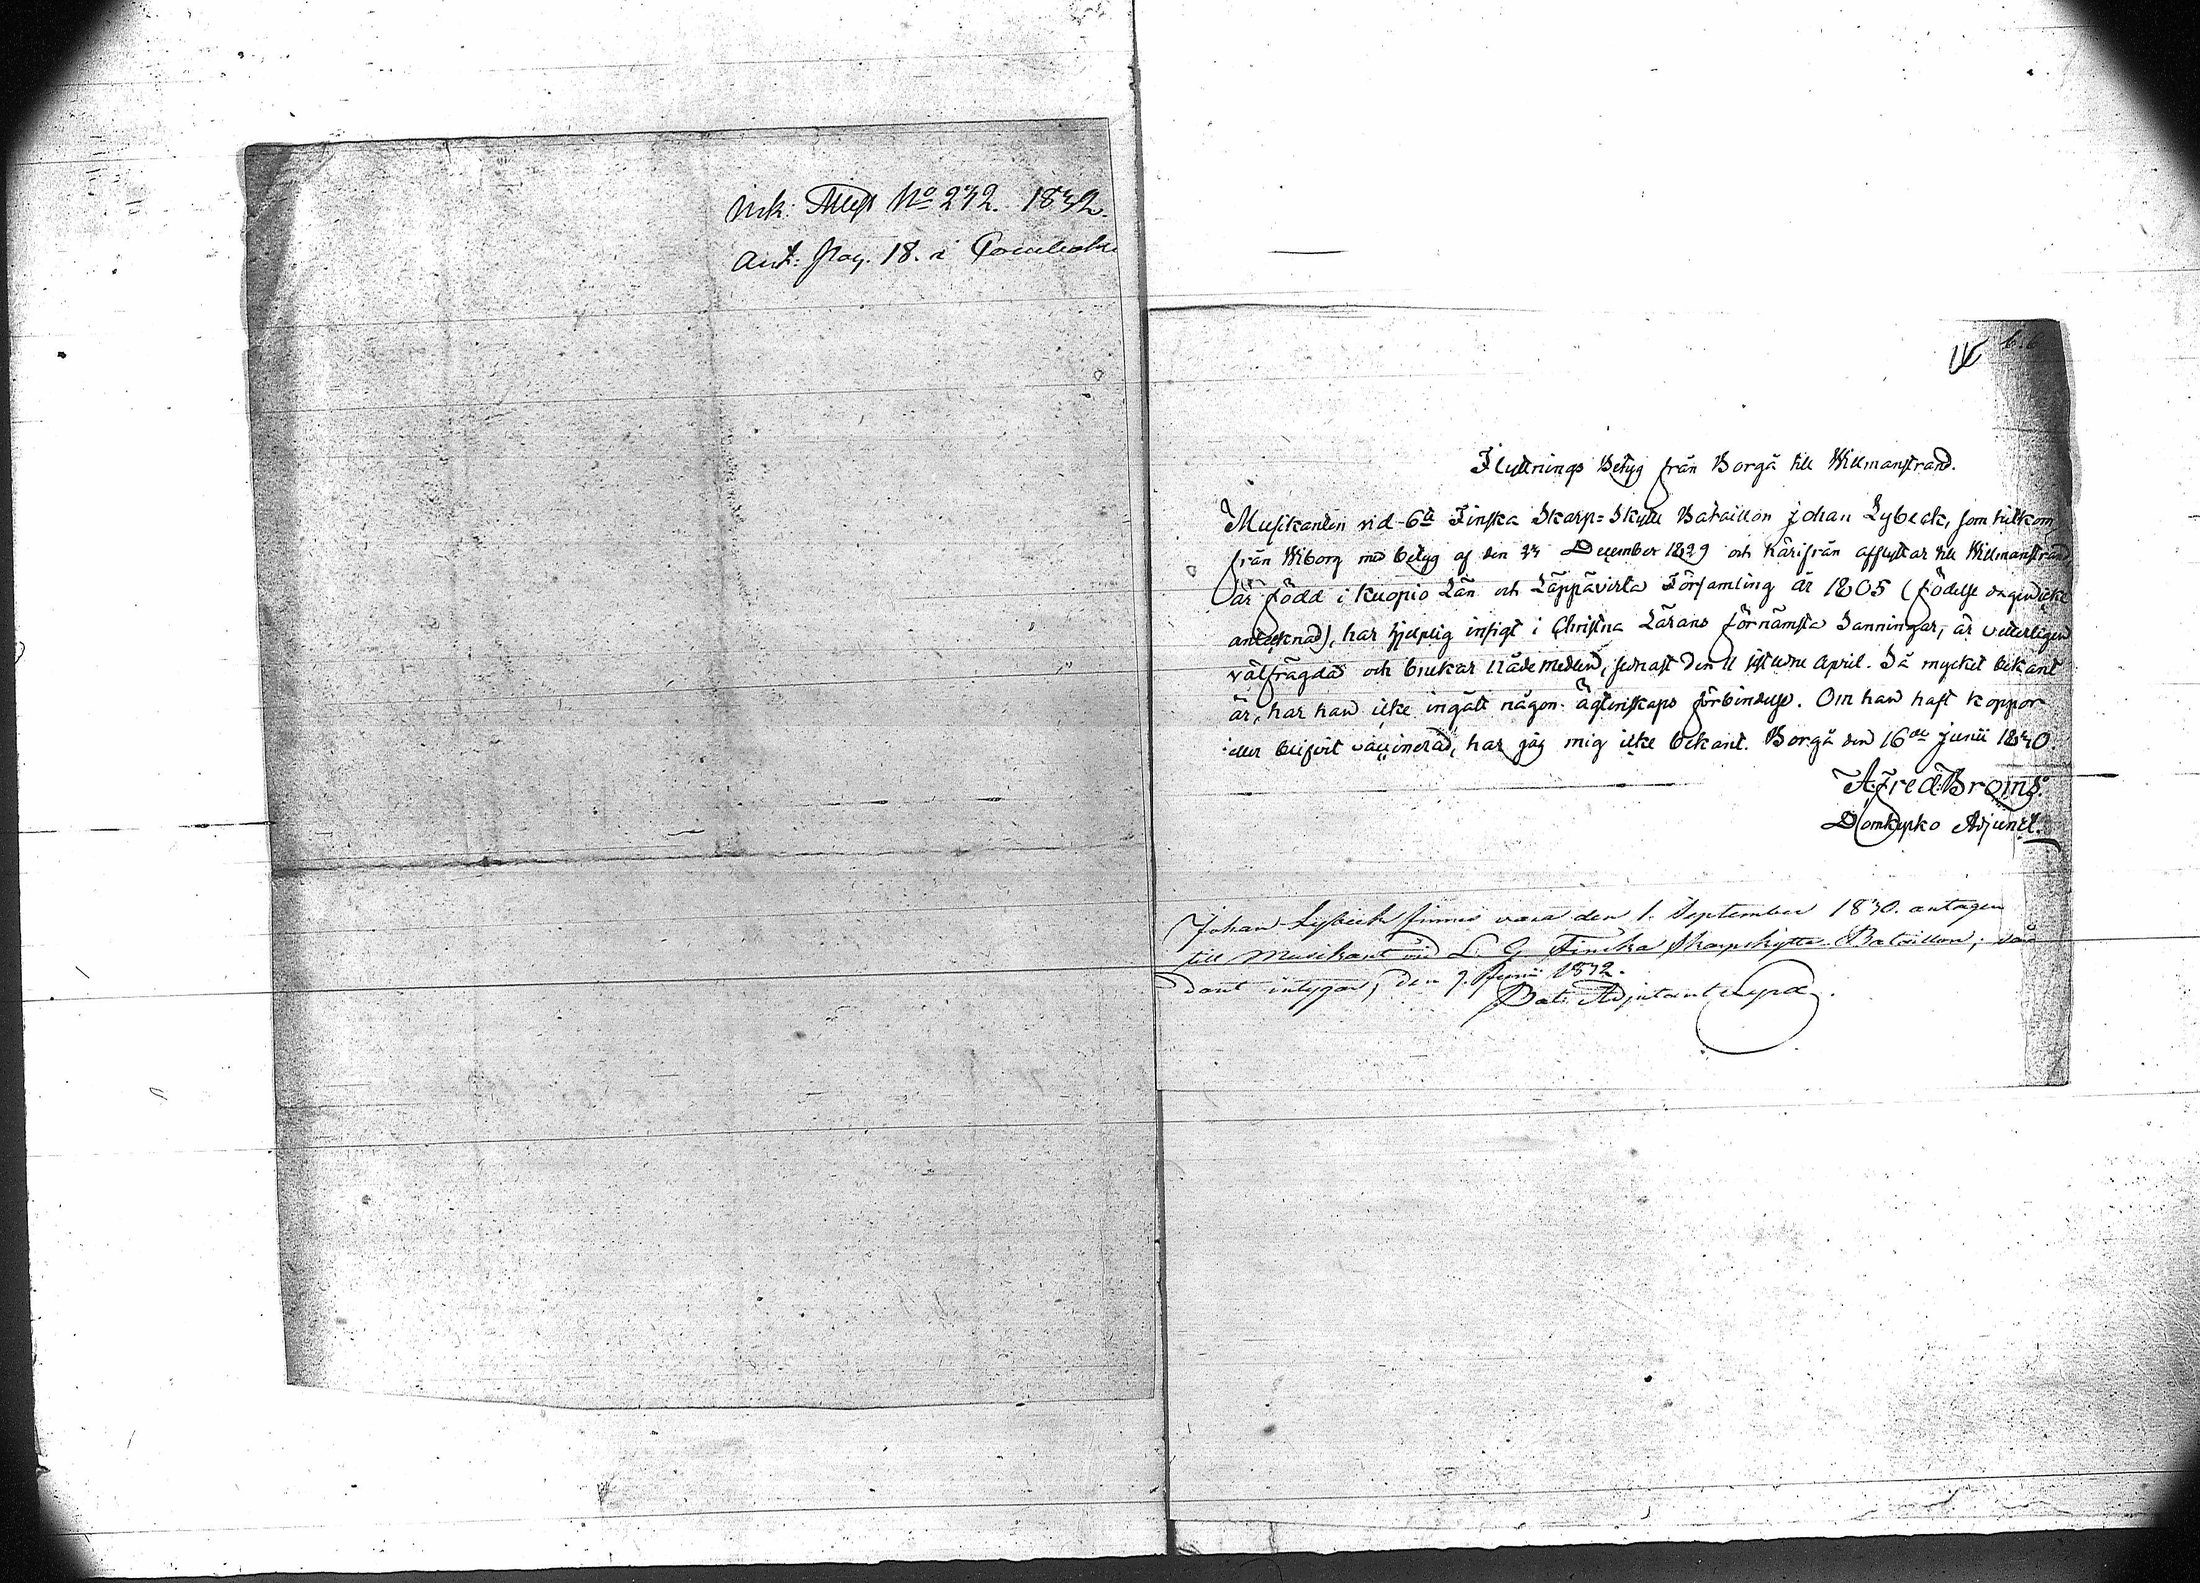 Ink: Attest No 232. 1832.
Ant: pag. 18. i
116
Flyttnings Betyg från Borgå till Willmanstrand.
Musikanten vid 6te Finska Skarp=Skytte Bataillon Johan Lybeck, som hitkom
från Wiborg med betyg af den 23 December 1829 och härifrån afflyttar till Willmanstrand,
är född i Kuopio Län och Läppävirta Församling år 1805 (födelse dagen icke
antecknad), har hjelplig insigt i Christna Lärans förnämsta Sanningar, är vetterligen
välfrägdad och brukar Nådemedlen, sednast den 11 sistledne April. Så mycket bekant
är, har han icke ingått någon ägtenskaps förbindelse. Om han haft koppor
eller blifvit vaccinerad, har jag mig icke bekant. Borgå den 16de Junii 1830
A. Fred. Broms.
Domkyrko Adjunct.
Johan Lybeck finnes vara den 1. September 1830. antagen
till Musikant vid L. G. Finska Skarpskytte Bataillon; som
intygar, den 7. Junii 1832.
Bat. Adjutant